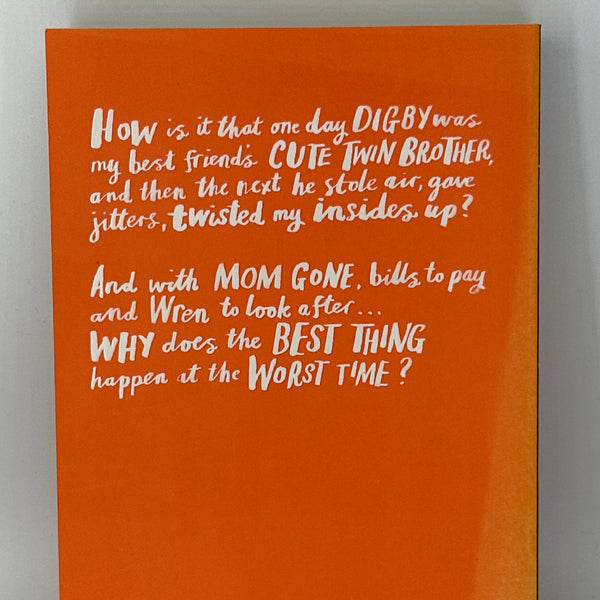 HOW is it that one day DIGBY was
my best friend's CUTE TWIN BROTHER,
and then the next he stole air, gave
jitters, twisted my insides up?
And with MOM GONE, bills to pay
and Wren to look after...
WHY does the BEST THING
happen at the WORST TIME?